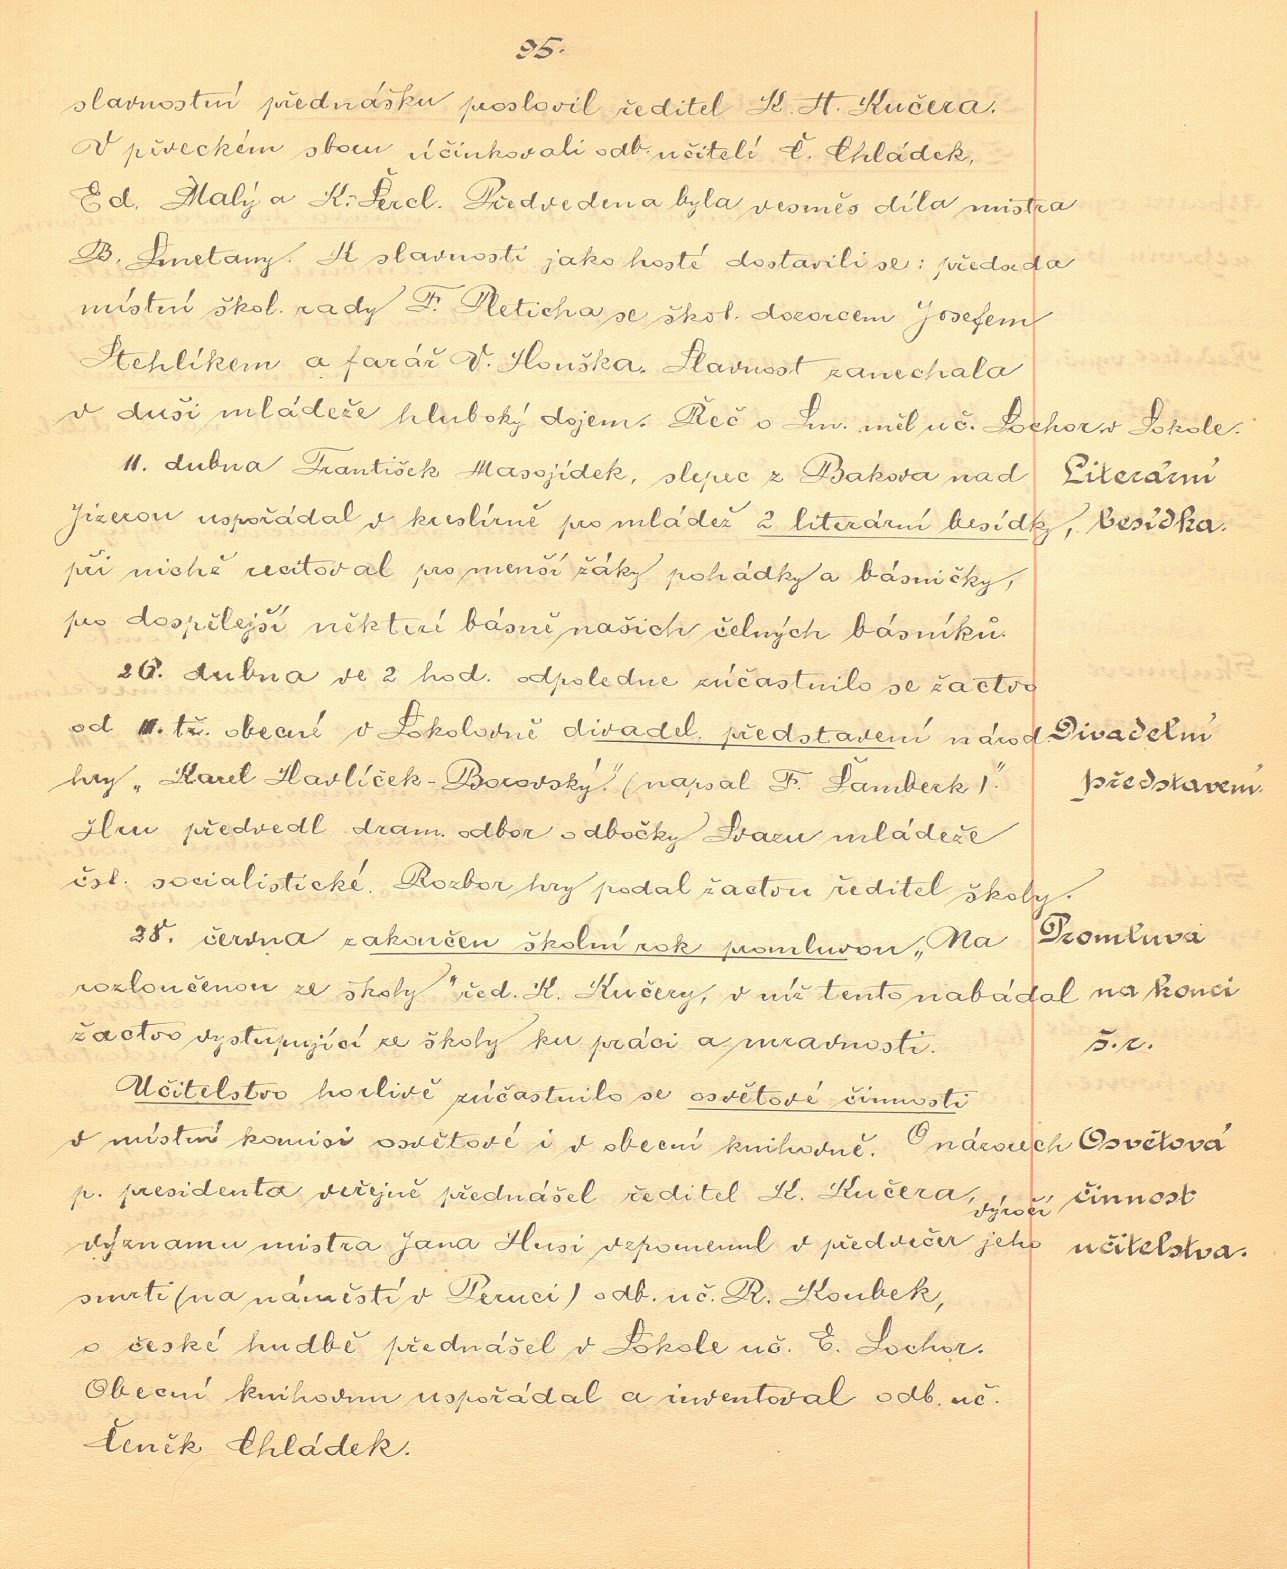 95.
slavnostní přednášku proslovil ředitel K. H. Kučera.
V pěveckém sboru účinkovali odb. učitelé Č. Chládek,
Ed. Malý a K. Šercl. Předvedena byla vesměs díla mistra
B. Smetany. K slavnosti jako hosté dostavili se: předseda
místní škol. rady F. Pleticha se škol. dozorcem Josefem
Stehlíkem a farář V. Houška. Slavnost zanechala
v duši mládeže hluboký dojem. Řeč o Sm. měl uč. Lochor v Sokole.
11. dubna František Masojídek, slepec z Bakova nad Literární
Jizerou uspořádal v kreslírně pro mládež 2 literární besídky, besídka.
při nichž recitoval pro menší žáky pohádky a básničky,
pro dospělejší některé básně našich čelných básníků.
26. dubna ve 2 hod. odpoledne zúčastnilo se žactvo
od III. tř. obecné v Sokolovně divadel. představení národ. Divadelní
hry „Karel Havlíček-Borovský." (napsal F. Šamberk)". představení.
Hru předvedl dram. odbor odbočky Svazu mládeže
čsl. socialistické. Rozbor hry podal žactvu ředitel školy.
28. června zakončen školní rok promluvou „Na Promluva
rozloučenou ze školy" řed. K. Kučery, v níž tento nabádal na konci
žactvo vystupující ze školy ku práci a mravnosti. š.r.
Učitelstvo horlivě zúčastnilo se osvětové činnosti
v místní komisi osvětové i v obecní knihovně. O názorech Osvětová
p. presidenta veřejně přednášel ředitel K. Kučera, činnost
výročí
významu mistra Jana Husi vzpomenul v předvečer jeho učitelstva.
smrti (na náměstí v Peruci) odb. uč. R. Koubek,
o české hudbě přednášel v Sokole uč. E. Lochor.
Obecní knihovnu uspořádal a inventoval odb. uč.
Čeněk Chládek.